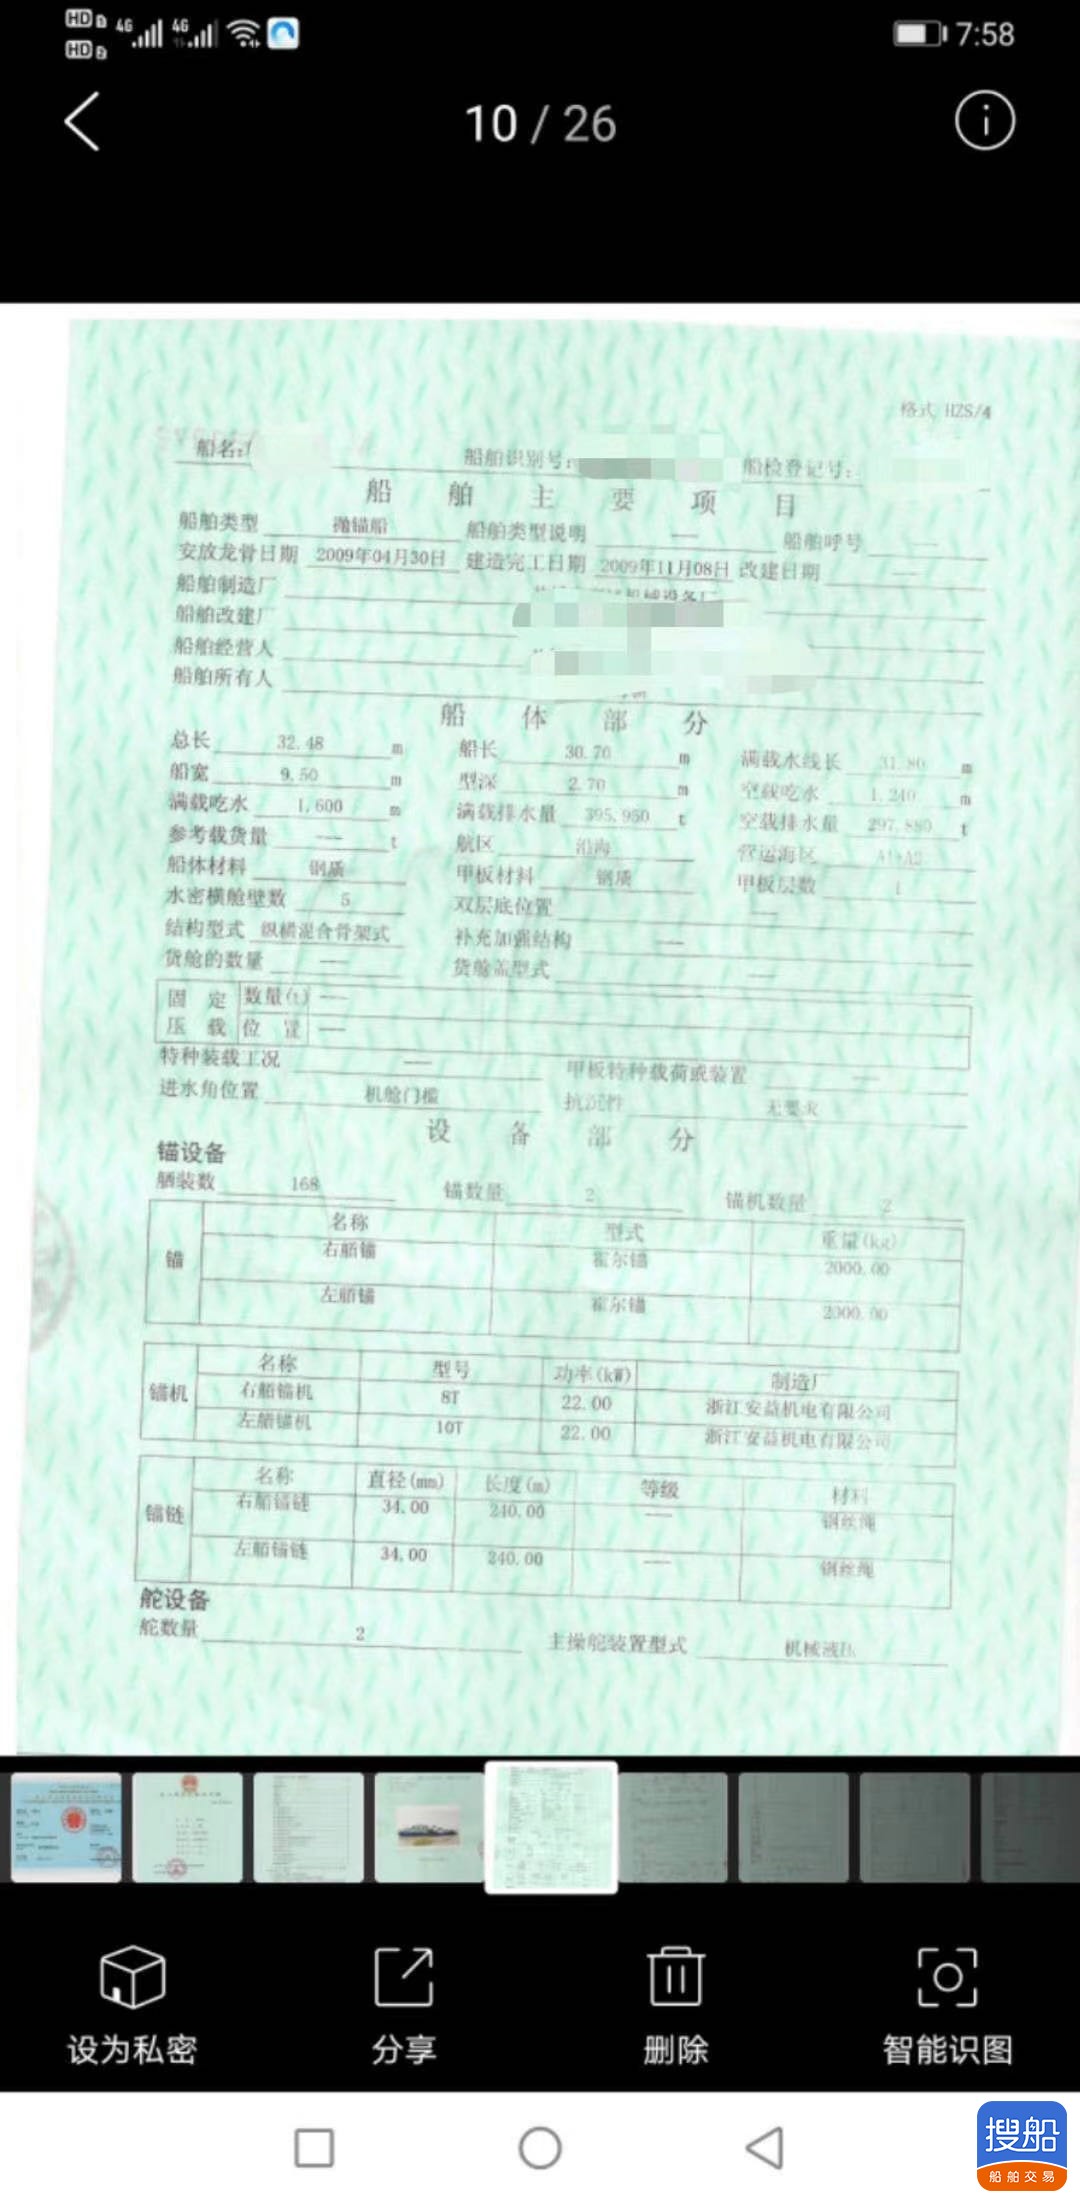 HD 1 4G 4G 7:58
HD 2
10 / 26
格式 HZS/4
船名: 船舶识别号: 船检登记号:
船舶主要项目
船舶类型 抛锚船 船舶类型说明 — 船舶呼号 —
安放龙骨日期 2009年04月30日 建造完工日期 2009年11月08日 改建日期 —
船舶制造厂 机械设备厂
船舶改建厂
船舶经营人
船舶所有人
船体部分
总长 32.48 m 船长 30.70 m 满载水线长 31.80 m
船宽 9.50 m 型深 2.70 m 空载吃水 1.240 m
满载吃水 1.600 m 满载排水量 395.950 t 空载排水量 297.880 t
参考载货量 — t 航区 沿海 营运海区 A1+A2
船体材料 钢质 甲板材料 钢质 甲板层数 1
水密横舱壁数 5 双层底位置 —
结构型式 纵横混合骨架式 补充加强结构 —
货舱的数量 — 货舱盖型式 —
固定 数量(t) —
压载 位置 —
特种装载工况 — 甲板特种载荷或装置 —
进水角位置 机舱门槛 抗沉性 无要求
设备部分
锚设备
舾装数 168 锚数量 2 锚机数量 2
锚 名称 型式 重量(kg)
右艏锚 霍尔锚 2000.00
左艏锚 霍尔锚 2000.00
锚机 名称 型号 功率(kW) 制造厂
右艏锚机 8T 22.00 浙江安益机电有限公司
左艏锚机 10T 22.00 浙江安益机电有限公司
锚链 名称 直径(mm) 长度(m) 等级 材料
右艏锚链 34.00 240.00 — 钢丝绳
左艏锚链 34.00 240.00 — 钢丝绳
舵设备
舵数量 2 主操舵装置型式 机械液压
设为私密 分享 删除 智能识图
搜船
船舶交易